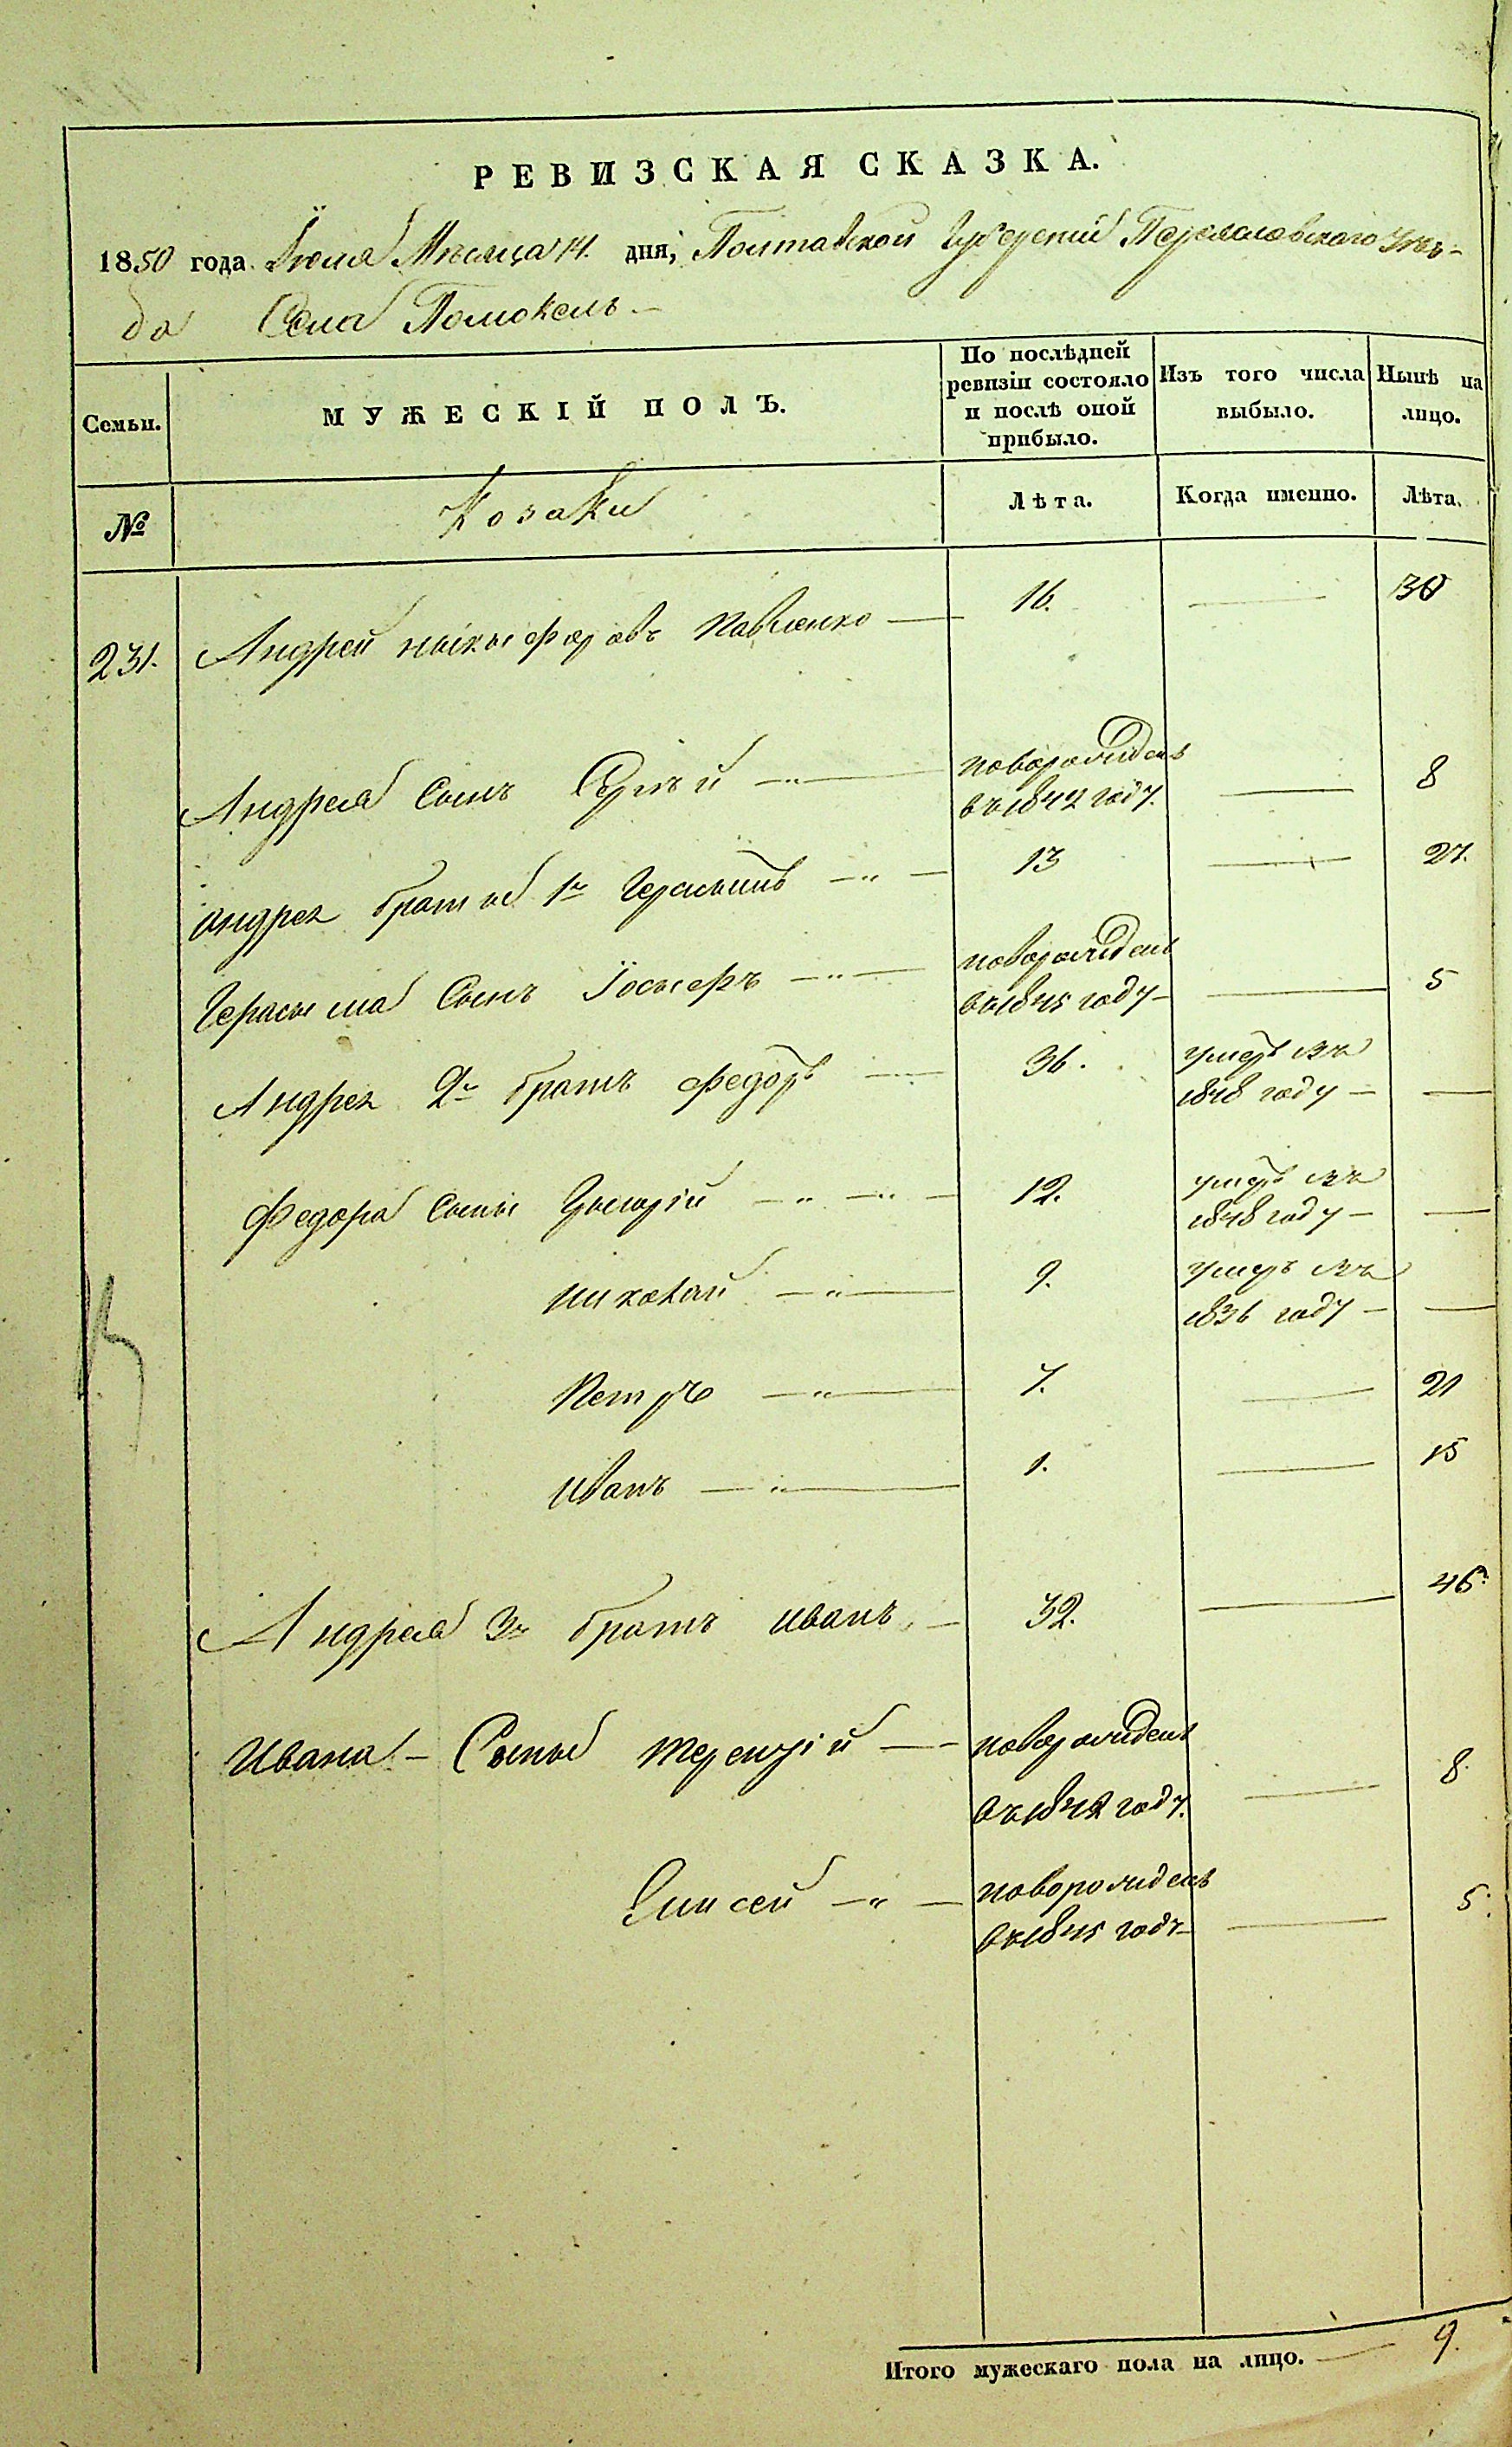 РЕВИЗСКАЯ СКАЗКА.
1850 года Июля Мѣсяца 14. дня, Полтавской Губерніи Переяславскаго Уѣз-
да Села Помоклъ
Семьи.
МУЖЕСКІЙ ПОЛЪ.
По послѣдней ревизіи состояло и послѣ оной прибыло.
Изъ того числа выбыло.
Нынѣ на лицо.
№
Козаки
Лѣта.
Когда именно.
Лѣта.
231. Андрей Ныкыфоровъ Павленко — 16. — 30
Андрея Сынъ Сергѣй —„— новорожденъ — 8
въ 1842 году.
Андрея братья 1й Герасымъ —„— 13 — 27.
Герасыма Сынъ Іосыфъ —„— новорожденъ — 5
въ 1845 году—
Андрея 2й братъ Федоръ — 36. умеръ въ
1848 году — —
Федора Сыны Грыгорій —„—„— 12. умеръ въ
1848 году — —
Николай —„— 9. умеръ въ
1836 году — —
Петръ —„— 7. — 21
Иванъ —„— 1. — 15
Андрея 3й братъ Иванъ, — 32. — 46.
Ивана — Сыны Терентій — новорожденъ
въ 1842 году. — 8.
Елисей —„— новорожденъ
въ 1845 году— — 5.
Итого мужескаго пола на лицо. — 9.